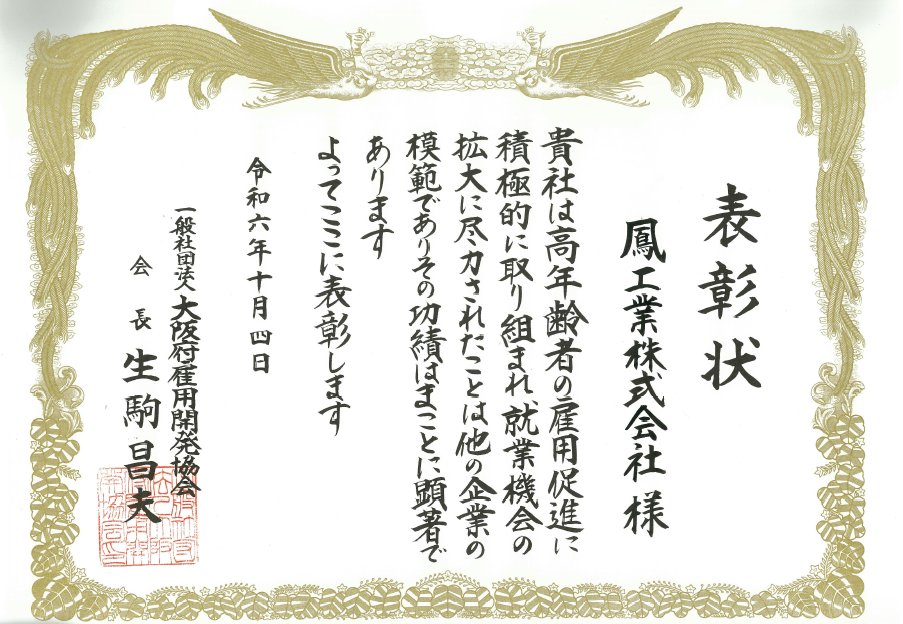 表彰状
鳳工業株式会社 様
貴社は高年齢者の雇用促進に
積極的に取り組まれ、就業機会の
拡大に尽力されたことは他の企業の
模範でありその功績はまことに顕著で
あります
よってここに表彰します
令和六年十月四日
一般社団法人 大阪府雇用開発協会
会長 生駒昌夫